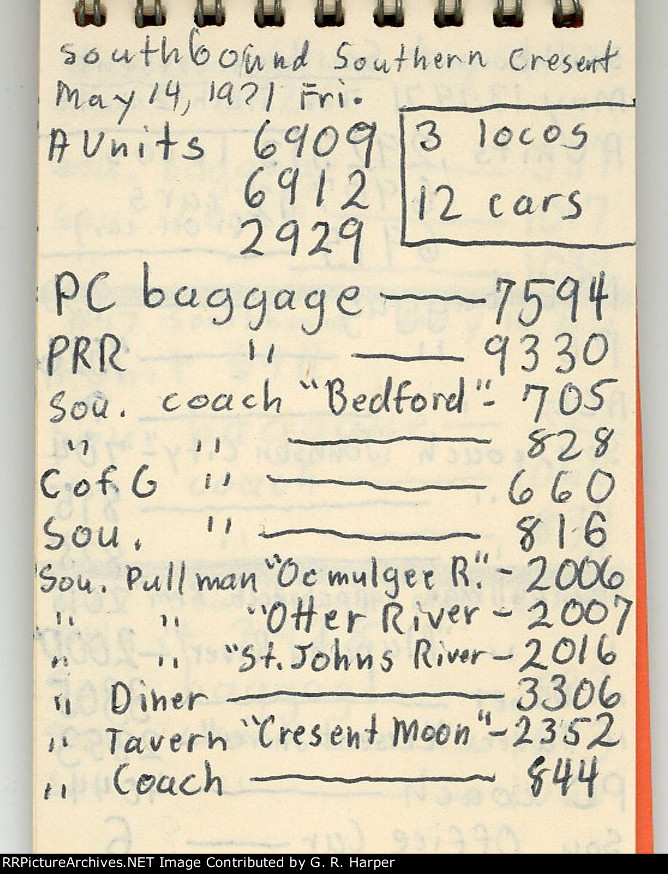 southbound Southern Cresent
May 14, 1971 Fri.
A Units 6909
6912
2929
3 locos
12 cars
PC baggage — 7594
PRR " — 9330
Sou. coach "Bedford" - 705
" " — 828
C of G " — 660
Sou. " — 816
Sou. Pullman "Ocmulgee R." - 2006
" " "Otter River - 2007
" " "St. Johns River - 2016
" Diner — 3306
" Tavern "Cresent Moon" - 2352
" Coach — 844
RRPictureArchives.NET Image Contributed by G. R. Harper